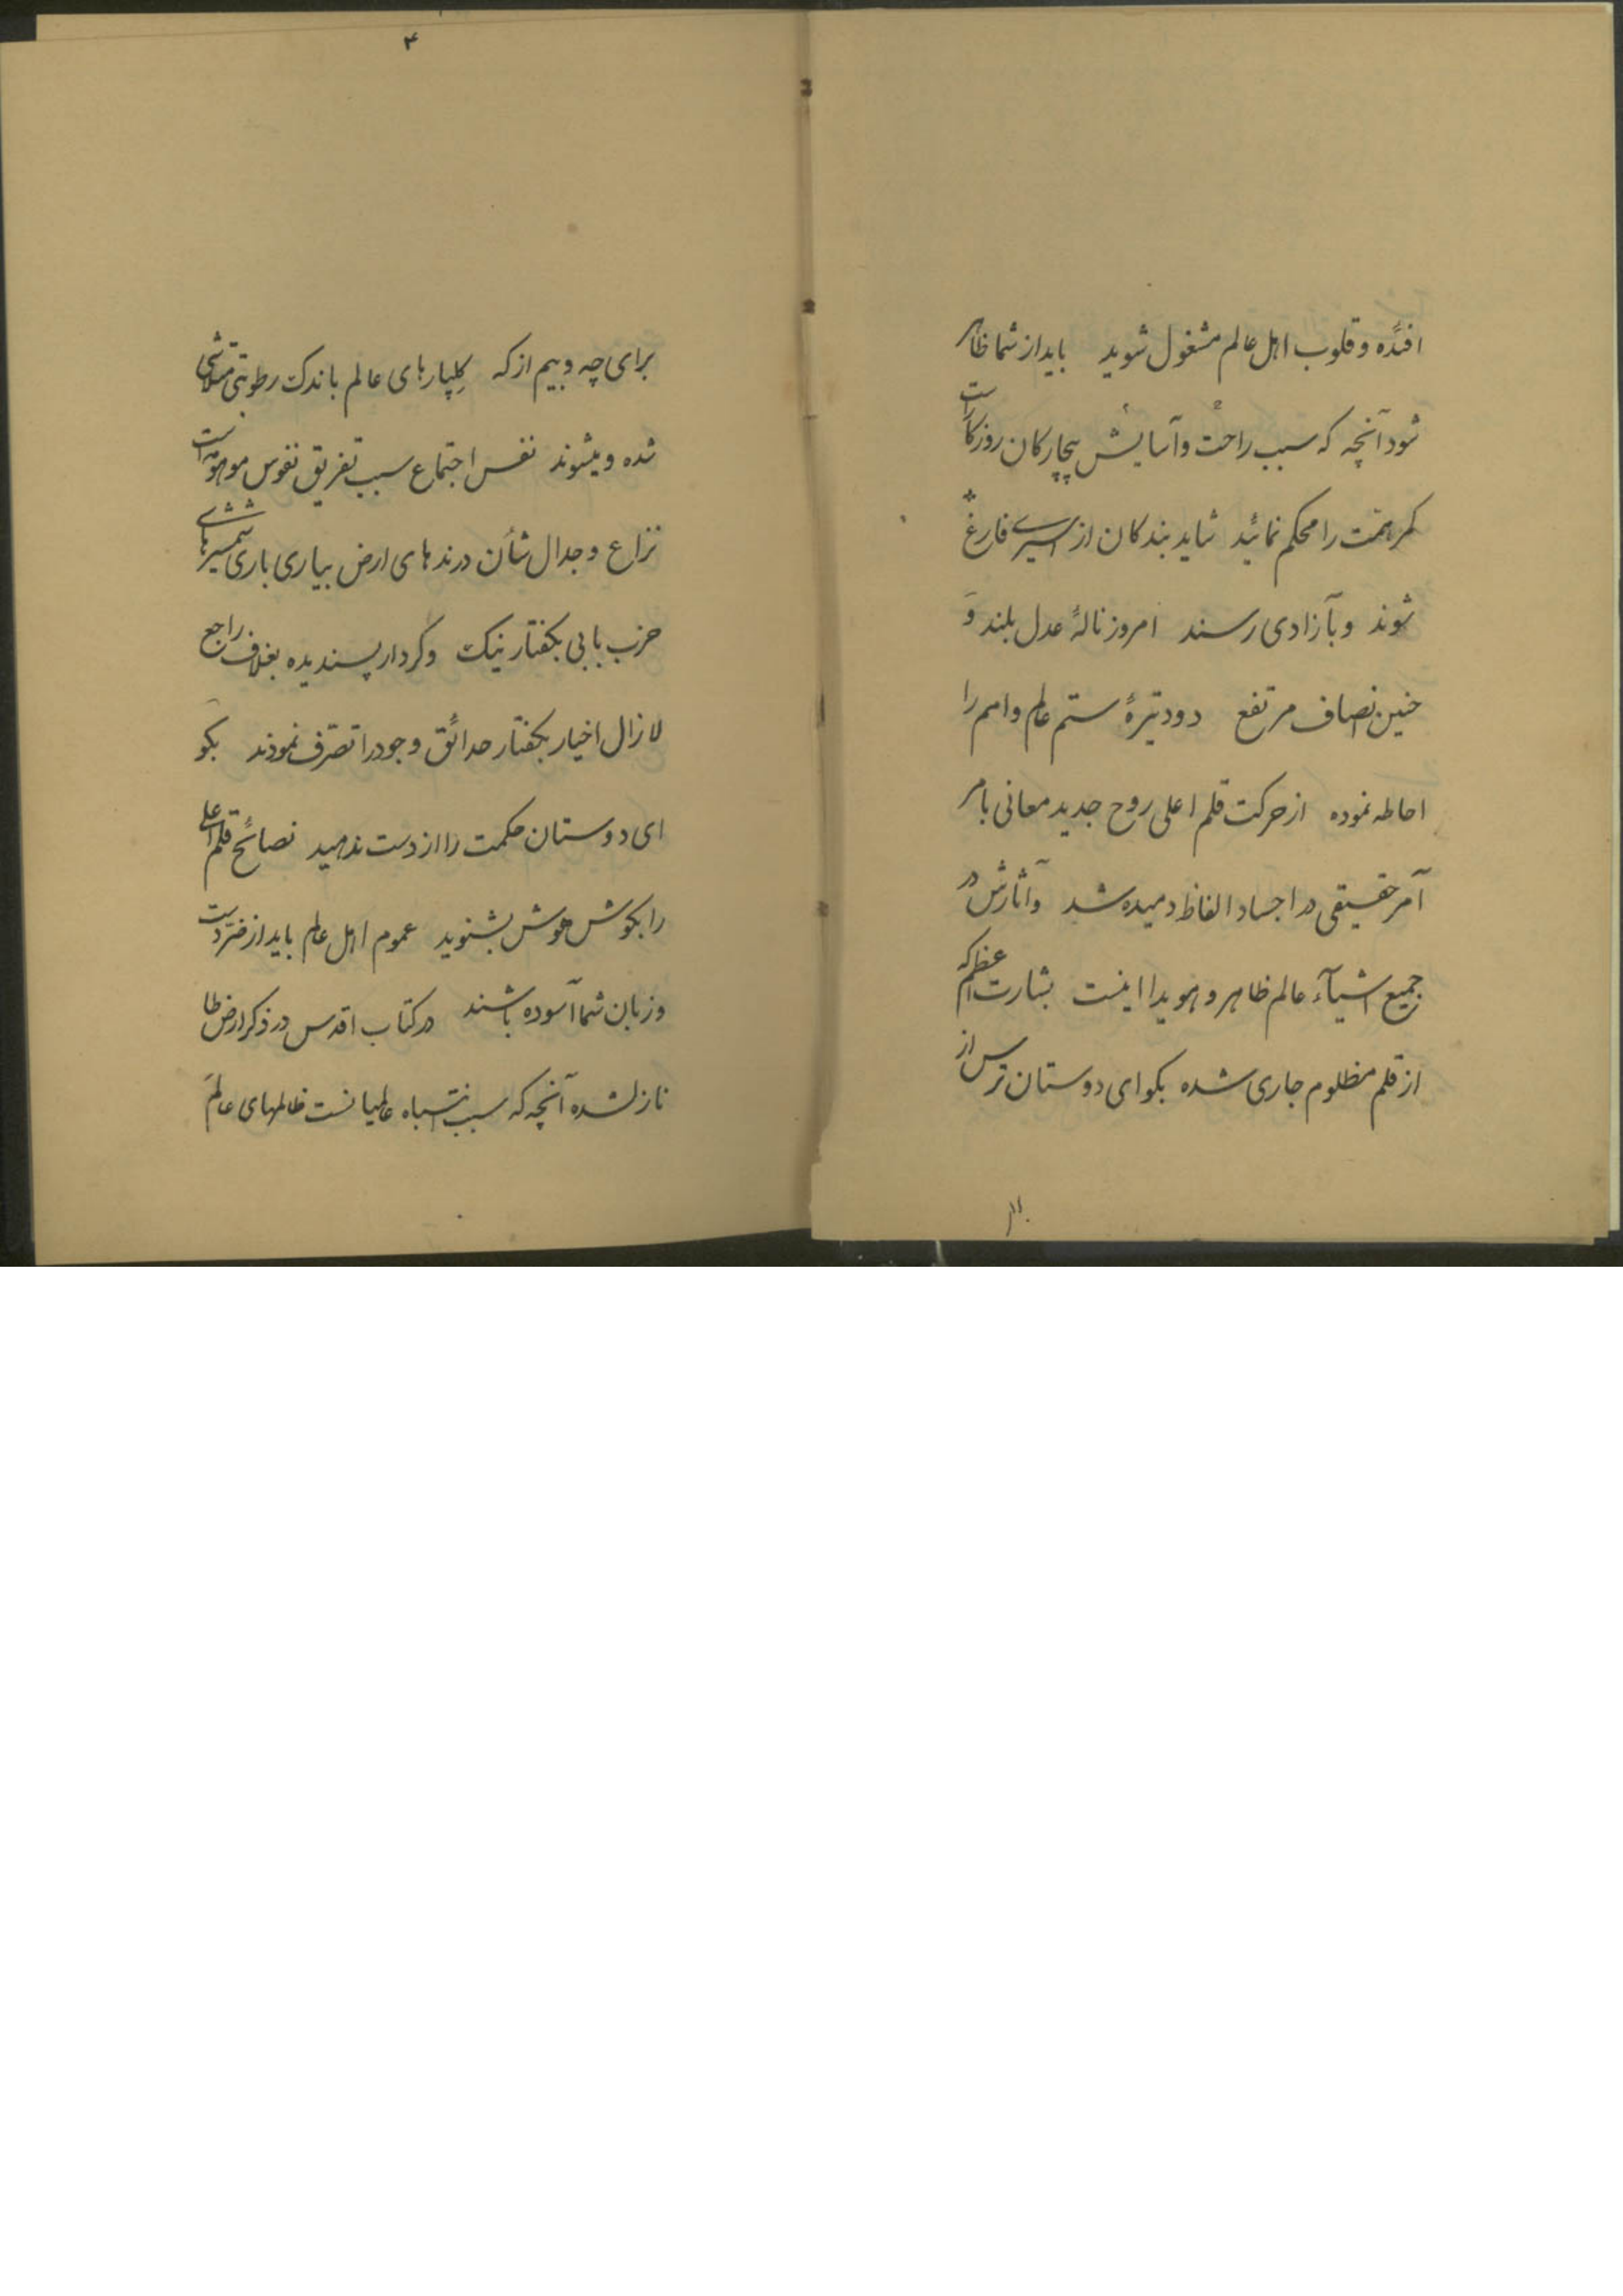 افئده و قلوب اهل عالم مشغول شوید باید از شما ظاهر
شود آنچه که سبب راحت و آسایش بیچارکان روزکار است
کمر همّت را محکم نمائید شاید بندکان از اسیری فارغ
شوند و بآزادی رسند امروز نالهٔ عدل بلند و
حنین انصاف مرتفع دود تیرهٔ ستم عالم و امم را
احاطه نموده از حرکت قلم اعلی روح جدید معانی بامر
آمر حقیقی در اجساد الفاظ دمیده شد و آثارش در
جمیع اشیآء عالم ظاهر و هویدا اینست بشارت اعظم که
از قلم مظلوم جاری شده بکو ای دوستان ترس از
۴
برای چه و بیم از که کلپارهای عالم باندک رطوبتی متلاشی
شده و میشوند نفس اجتماع سبب تفریق نفوس موهومه است
نزاع و جدال شأن درندهای ارض بیاری باری شمشیرهای
حزب بابی بکفتار نیک و کردار پسندیده بغلاف راجع
لازال اخیار بکفتار حدائق وجود را تصرّف نمودند بکو
ای دوستان حکمت را از دست ندهید نصائح قلم اعلی
را بکوش هوش بشنوید عموم اهل عالم باید از ضرّ دست
و زبان شما آسوده باشند در کتاب اقدس در ذکر ارض طا
نازلشده آنچه که سبب انتباه عالمیانست ظالمهای عالم